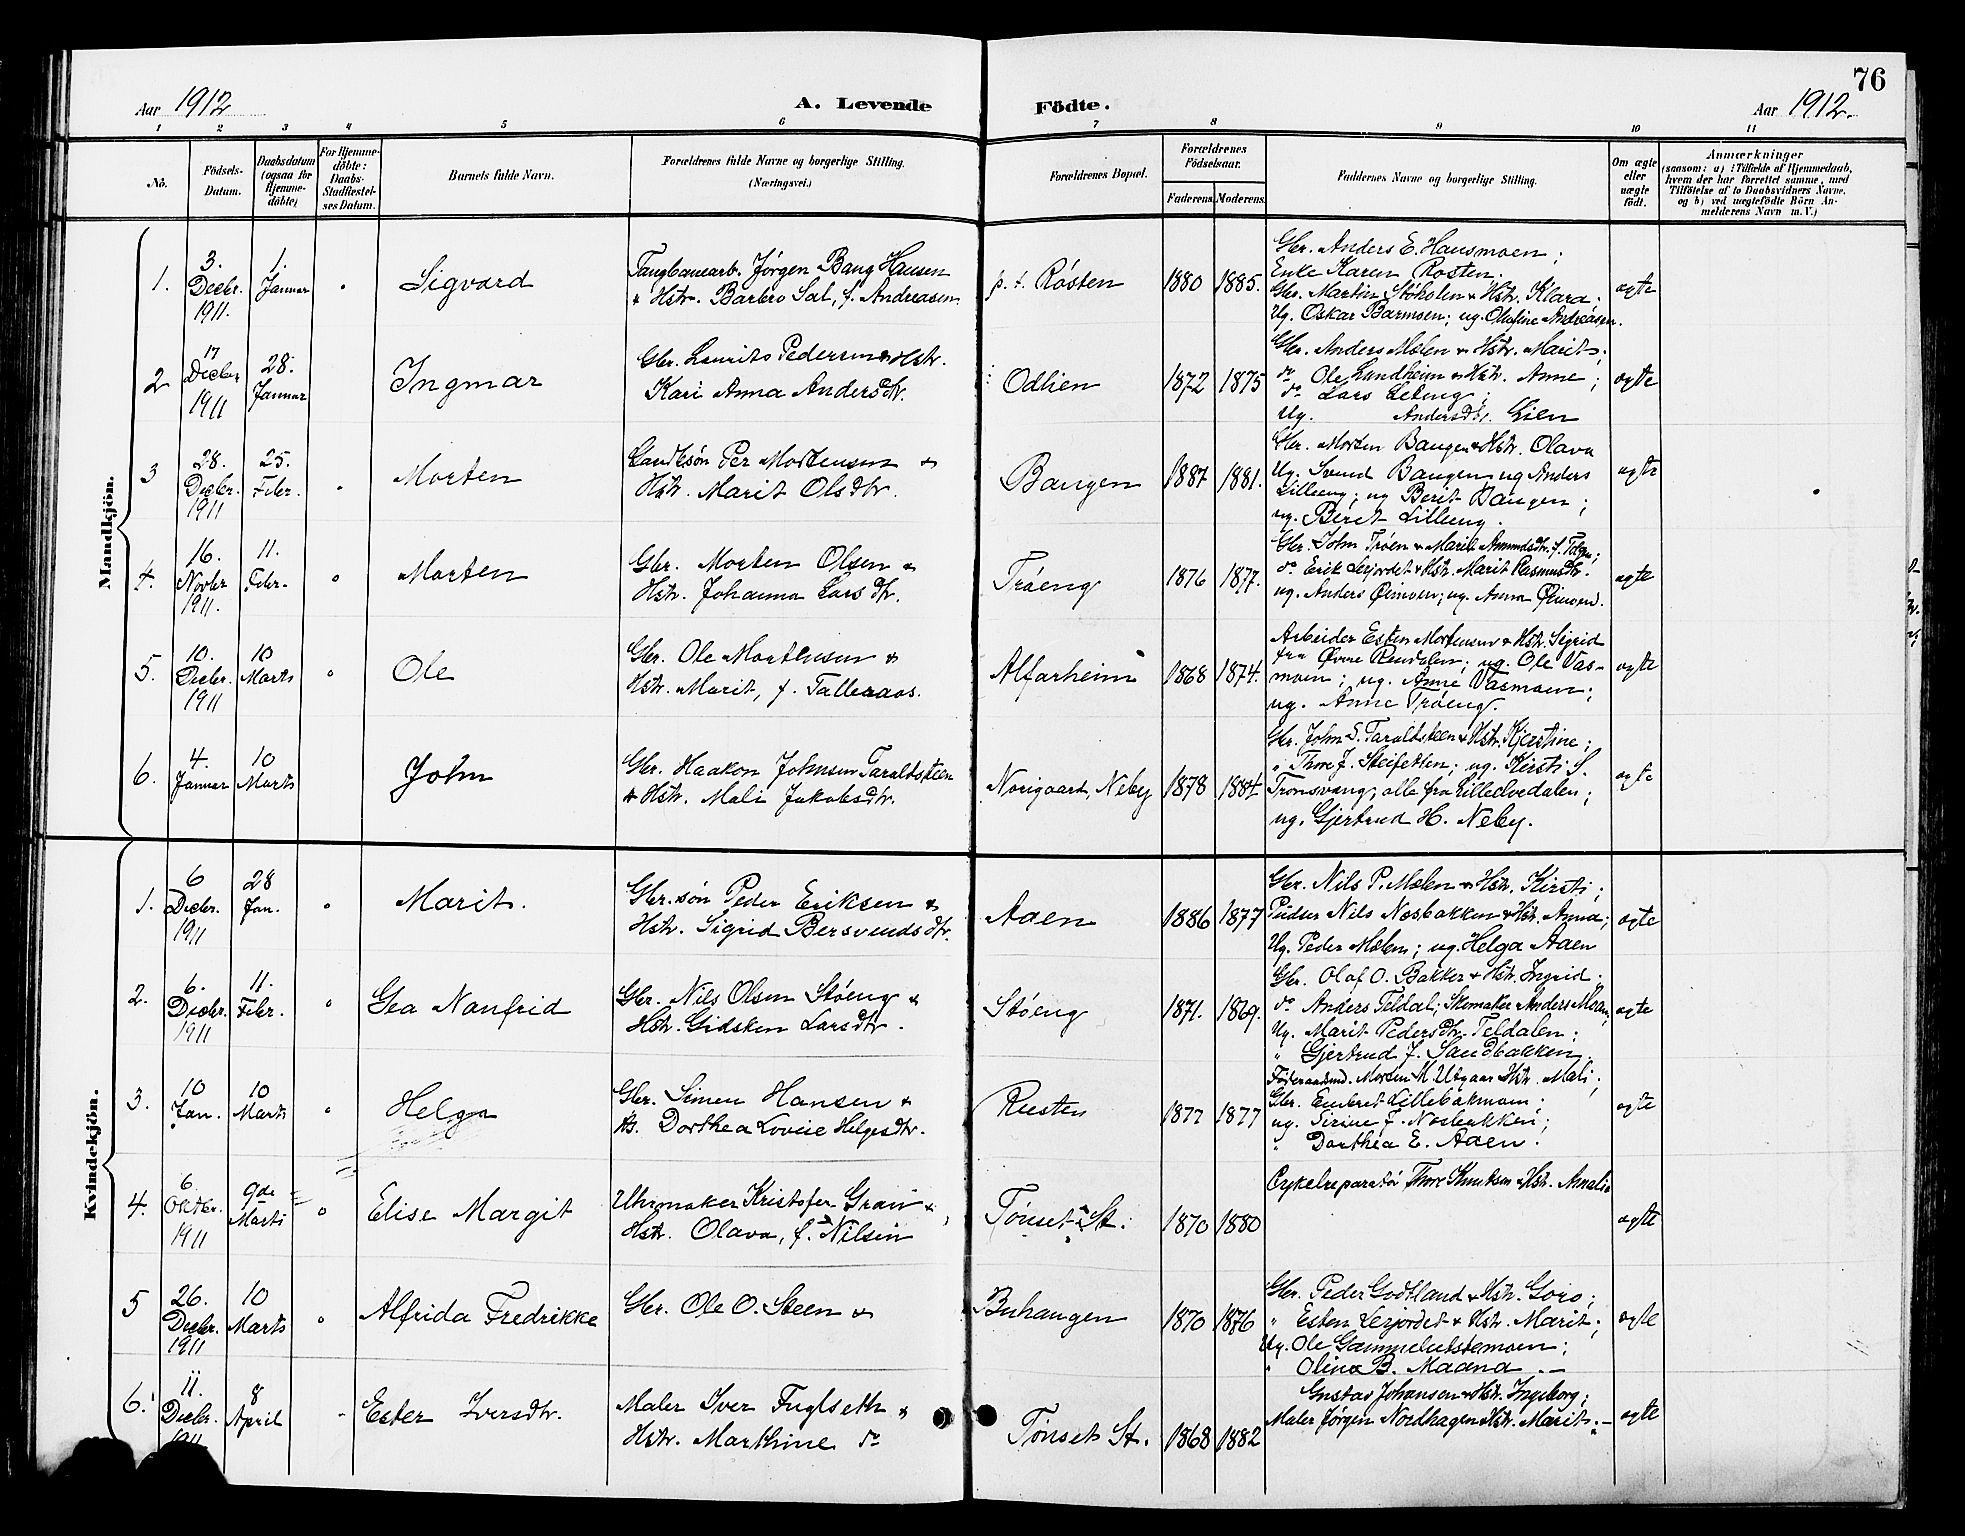 76
Aar 1912
A. Levende
Födte.
Aar 1912.
1 2 3 4 5 6 7 8 9 10 11
No.
Födsels-
Datum.
Daabsdatum
(ogsaa for
Hjemme-
döbte)
For Hjemme-
döbte:
Daabs-
Stadfæstel-
ses Datum.
Barnets fulde Navn.
Forældrenes fulde Navne og borgerlige Stilling.
(Næringsvei.)
Forældrenes Bopæl.
Forældrenes
Födselsaar.
Faderens
Moderens.
Faddernes Navne og borgerlige Stilling.
Om ægte
eller
uægte
født.
Anmærkninger
(saasom: a) i Tilfælde af Hjemmedaab,
hvem der har forrettet samme, med
Tilföielse af to Daabsvidners Navne,
og b) ved uægtefödte Börn An-
melderens Navn m. V.)
Mandkjön.
1.
3.
Decbr.
1911.
1.
Januar
Sigvard
Jørgen Bang Hansen
& Hstr. Barbro Sal, f. Andreasen.
p. t. Røsten
1880
1885.
Gbr. Anders E. Hausmoen;
Enke Karen Rosten.
Gbr. Martin Støholen & Hstr. Klara;
Ug. Oskar Barmoen; ug. Oluline Andreasen.
ægte
2
17
Decbr
1911
28.
Januar
Ingmar
Gbr. Laurits Pedersen & Hstr.
Kari Anna Andersdtr.
Odlien
1872
1875
Gbr. Anders Mælen & Hstr. Marit;
do Ole Lundheim & Hstr. Anne;
do Lars Eleng;
Ug. Andersdtr. Lien
ægte
3
28.
Decbr.
1911
25.
Febr.
Morten
Per Mortensen &
Hstr. Marit Olsdtr.
Bangen
1887
1881.
Gbr. Morten Bangen & Hstr. Olava
Ug. Svend Bangen ug Anders
Lilleeng; ug Berit Bangen;
ug. Beret Lilleeng.
ægte
4.
16.
Novbr
1911.
11.
Febr.
Morten
Gbr. Morten Olsen &
Hstr. Johanna Larsdtr.
Trøeng
1876
1877.
Gbr. John Trøen & Marit Amundsdtr. f. Tolgen;
do Erik Lerjordet & Hstr. Marit Rasmusdtr.
ug. Anders Øimoen; ug. Anna Øimoen.
ægte
5.
10.
Decbr.
1911
10
Marts
Ole
Gbr. Ole Mortensen &
Hstr. Marit, f. Talleraas.
Alfarheim
1868
1874.
Arbeider Esten Mortensen & Hstr. Sigrid
fra Øvre Rendalen; ug. Ole Vas-
moen; ug. Anne Vasmoen;
ug. Anne Trøeng.
ægte
6.
4.
Januar
10
Marts
John
Gbr. Haakon Johnsen Taraldsteen
& Hstr. Mali Jakobsdtr.
Norigaard, Neby
1878
1884
Gbr. John S. Taraldsteen & Hstr. Kjerstine;
" Thore J. Steifetten; ug. Kirsti S.
Tronsvang, alle fra Lilleelvedalen;
ug. Gjertrud H. Neby.
ægte
Kvindekjön.
1.
6
Decbr.
1911
28
Jan.
Marit.
Gbr.søn Peder Eriksen &
Hstr. Sigrid Bersvendsdtr.
Aaen
1886
1877
Gbr. Nils P. Mælen & Hstr. Kirsti;
Nils Næsbakken & Hstr. Anna;
Ug. Peder Mælen; ug. Helga Aaen
ægte
2.
6.
Decbr.
1911
11.
Febr.
Gea Nanfrid
Gbr. Nils Olsen Støeng &
Hstr. Gidsken Larsdtr.
Støeng
1871.
1869.
Gbr. Olaf O. Bakker & Hstr. Ingrid;
do Anders Teldal; Skomaker Anders Moan;
Ug. Marit Pedersdtr. Teldalen;
" Gjertrud J. Sandbakken.
ægte
3.
10
Jan.
10
Marts
Helga
Gbr. Simen Hansen &
Hs. Dorthea Lovise Helgesdtr.
Rusten
1877
1877
Føderaadsmd. Morten M. Utgaar & Hstr. Mali;
Gbr. Embret Lillebakmoen;
ug. Sirine J. Nesbakken;
" Dorthea E. Aaen.
ægte
4.
6
Oktbr.
1911
9de
Marts
Elise Margit
Uhrmaker Kristofer Gran &
Hstr. Olava, f. Nilsen
Tønset St.
1870
1880
Cykelreparatør Thore Knutsen & Hstr. Amalie
ægte
5
26.
Decbr.
1911
10
Marts
Alfrida Fredrikke
Gbr. Ole O. Steen &
Buhaugen
1870
1876
Gbr. Peder Godtland & Hstr. Goro;
" Esten Lerjordet & Hstr. Marit;
Ug. Ole Gammelutstumoen;
" Olina B. Maana.
ægte
6.
11.
Decbr.
1911
8
April
Ester Iversdtr.
Maler Iver Fuglseth &
Hstr. Marthine do
Tønset St.
1868
1882
Gustav Johansen & Hstr. Ingeborg;
Maler Jørgen Nordhagen & Hstr. Marit.
ægte